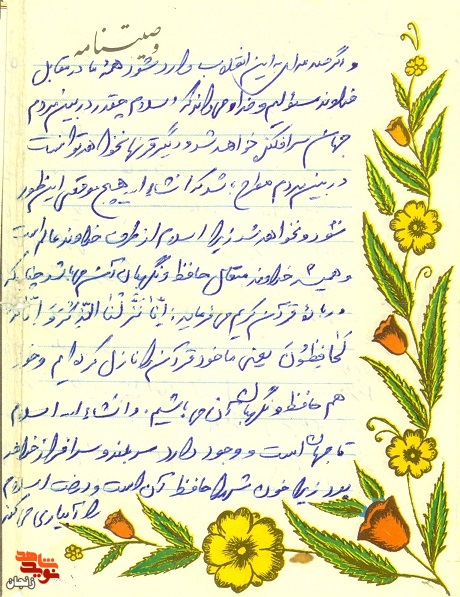 وصیتنامه
و اگر صدمه‌ای به این انقلاب وارد شود همهٔ ما در مقابل
خداوند مسئولیم و خدا می‌داند که اسلام چقدر در بین مردم
جهان سرافکنده خواهد شد و دیگر قرنها نخواهد توانست
در بین مردم مطرح شد که انشاءاله هیچ موقعی این طور
نشود و نخواهد شد زیرا اسلام از طرف خداوند عالم است
و همیشه خداوند متعال حافظ و نگهبان آن می باشد چنانکه
در قرآن کریم می فرماید: اِنّا نَزَّلْنَا الذِّکْرَ وَ اِنّا لَهُ
لَحافِظُونَ یعنی ما خود قرآن را نازل کرده ایم و خود
هم حافظ و نگهبان آن می باشیم. و انشاءاله اسلام
تا جهان است وجود دارد سربلند و سرافراز خواهد
بود زیرا خون شهدا حافظ آن است و درخت اسلام
را آبیاری می کند
نوید شاهد
زنجان